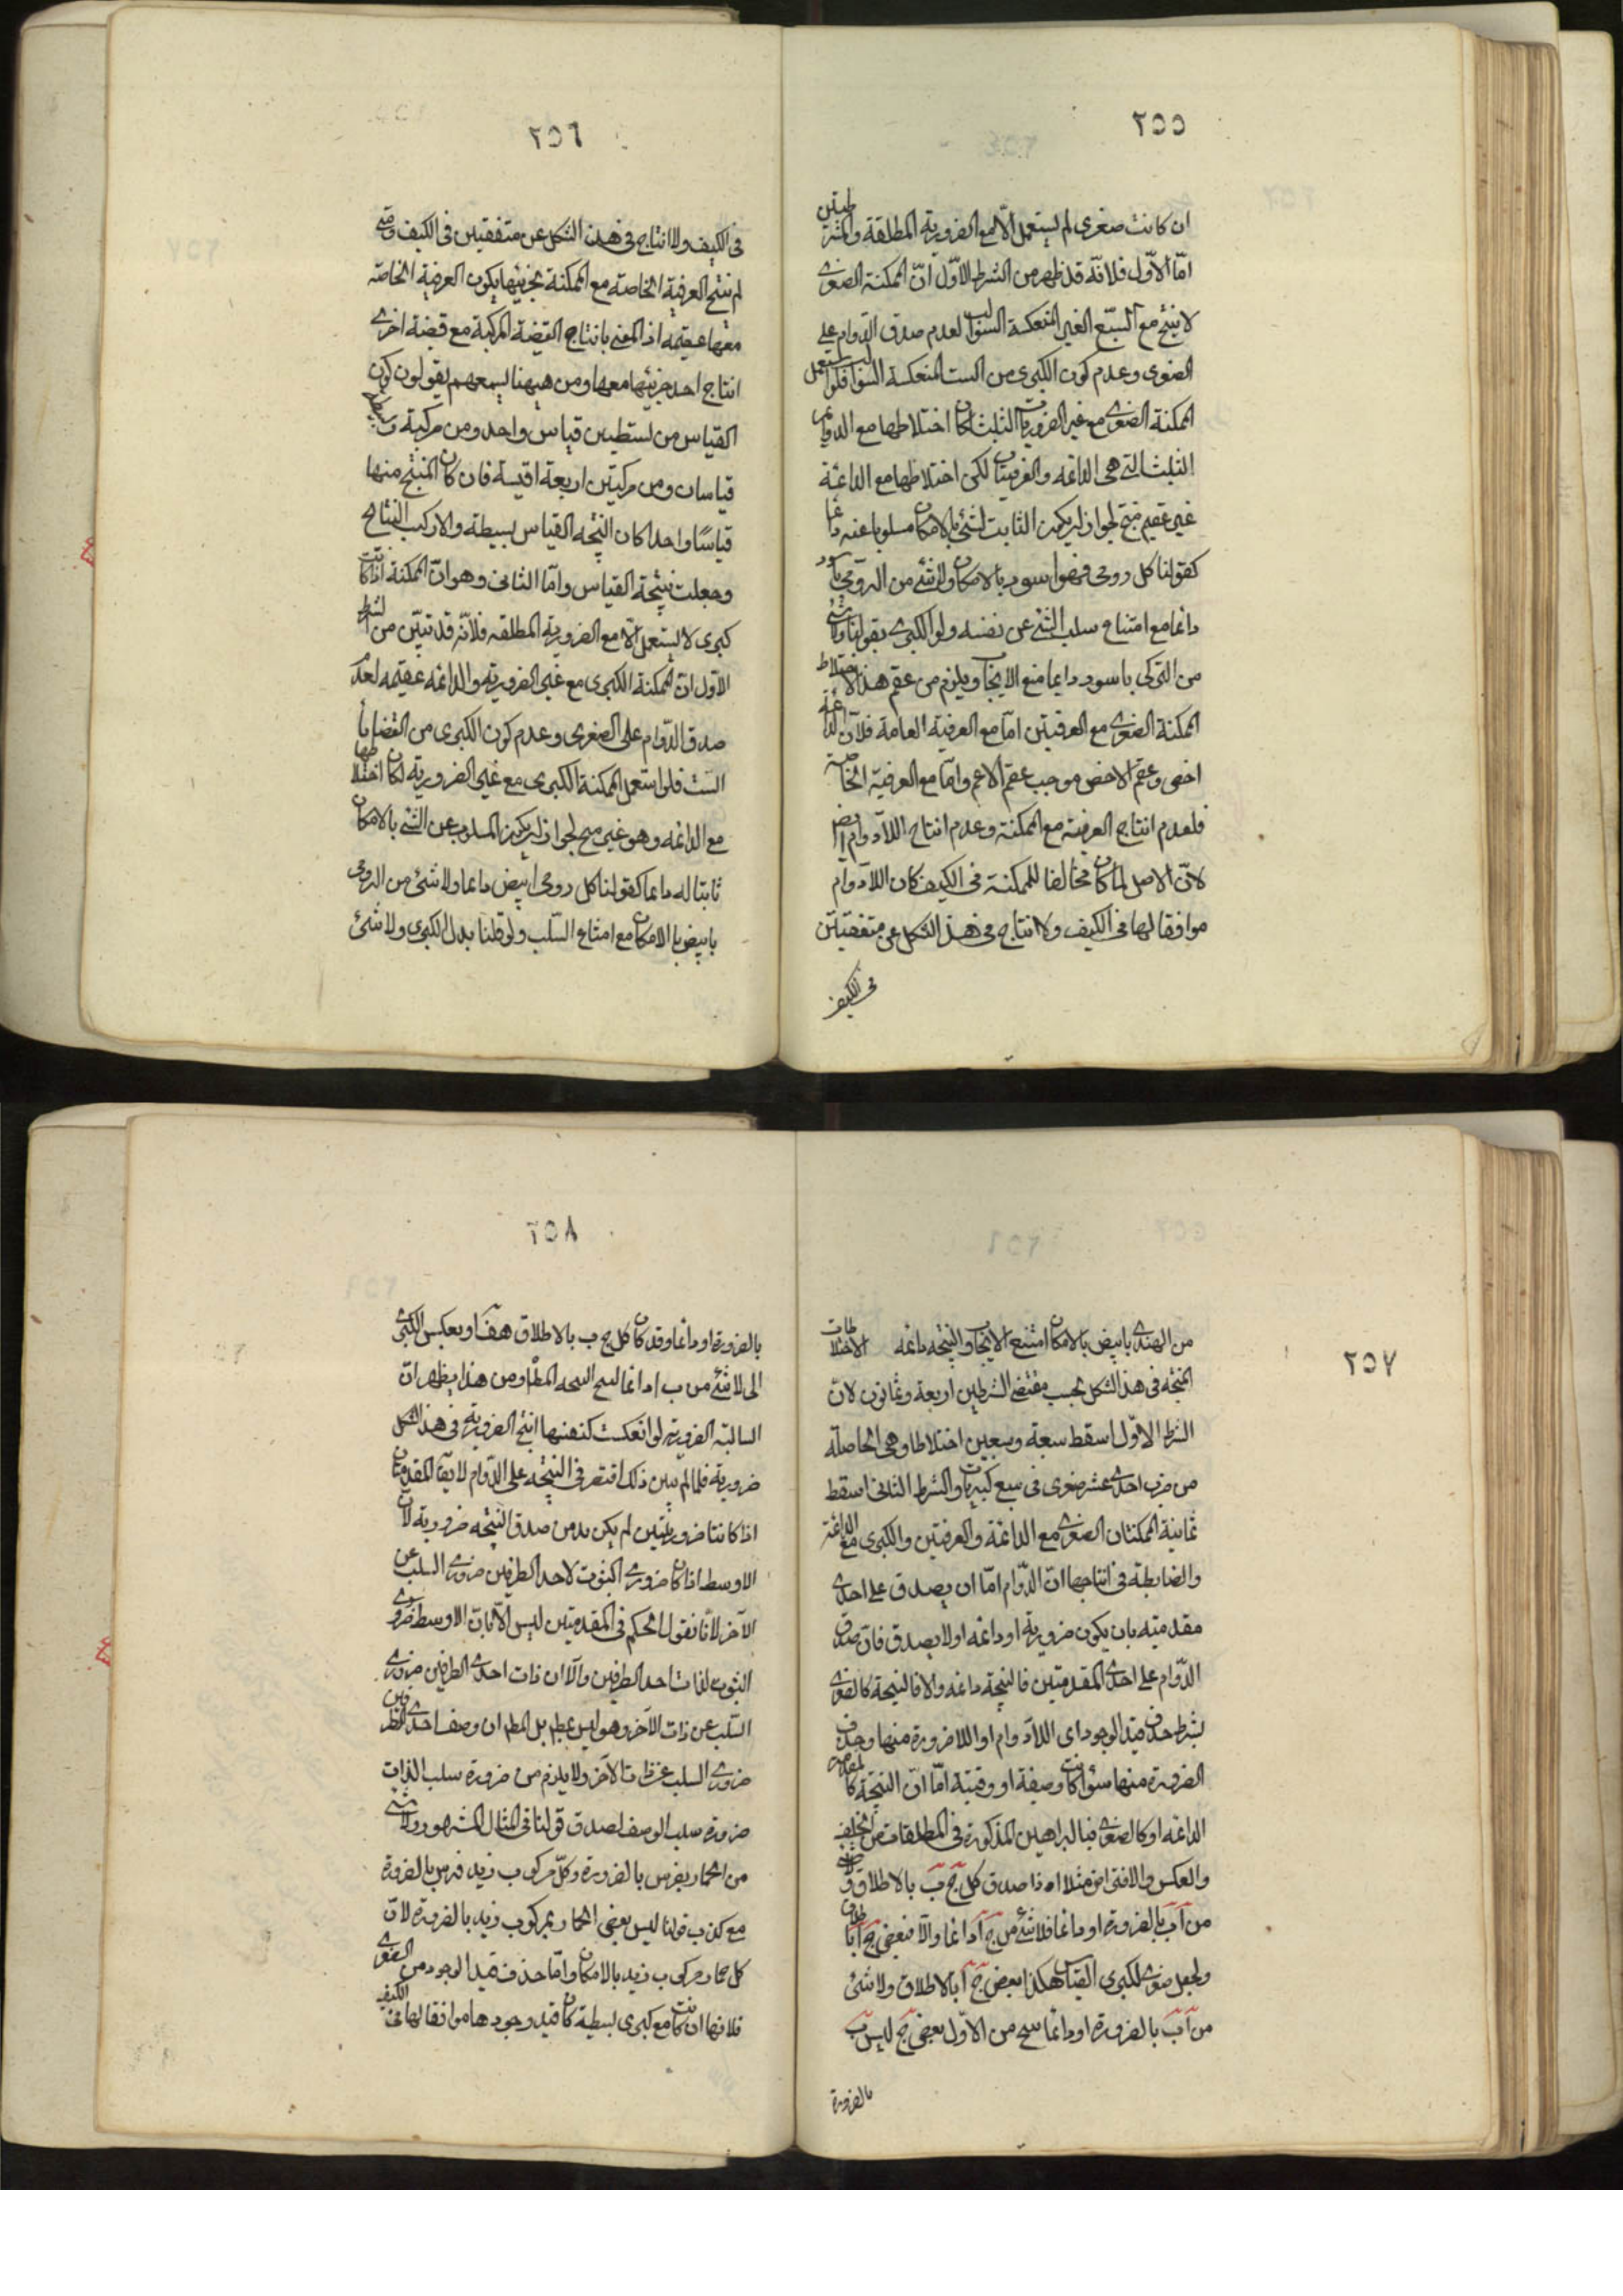 ٢٥٥
ان كانت صغرى لم يستعمل الّا مع الضرورية المطلقة والمشروطتين
امّا الاوّل فلانّه قد ظهر من الشرط الاوّل انّ الممكنة الصغرى
لا ينتج مع السبع الغير المنعكسة السوالب لعدم صدق الدوام على
الصغرى وعدم كون الكبرى من الست المنعكسة السوالب فلو استعمل
الممكنة الصغرى مع غير الضروريات الثلث لكان اختلاطها مع الدوايم
الثلث التى هى الدائمه والعرفيتان لكن اختلاطها مع الدائمة
غير عقيم منتج لجواز ان يكون الثابت لشئ بالامكان مسلوبا عنه دائما
كقولنا كل رومى فهو اسود بالامكان ولا شئ من الرومى باسود
دائما مع امتناع سلب الشئ عن نفسه ولو الكبرى بقولنا ولا شئ
من التركى باسود دايما منع الايجاب ويلزم من عقم هذا الاختلاط
الممكنة الصغرى مع العرفيتين امّا مع العرفية العامة فلانّ الدائمة
اخص وعقم الاخص موجب عقم الاعم وامّا مع العرفية الخاصة
فلعدم انتاج العرفية مع الممكنة وعدم انتاج اللادوام ايضا
لانّ الاصل لما كان مخالفا للممكنة فى الكيف كان اللادوام
موافقا لها فى الكيف ولا انتاج فى هذا الشكل عن متفقتين
فى الكيف
٢٥٦
فى الكيف ولا انتاج فى هذا الشكل عن متفقتين فى الكيف ومتى
لم ينتج العرفية الخاصة مع الممكنة بجزئيها يكون العرفية الخاصة
معها عقيمه اذ المعنى بانتاج القضية المركبة مع قضية اخرى
انتاج احد جزئيها معها ومن هيهنا يسمعهم يقولون يكون
القياس من بسيطين قياس واحد ومن مركبة وبسيطة
قياسان ومن مركبتين اربعة اقيسة فان كان المنتج منها
قياسًا واحدا كان النتيجه القياس بسيطة والا ركب النتائج
وجعلت نتيجة القياس وامّا الثانى وهو انّ الممكنة اذا كانت
كبرى لا يستعمل الّا مع الضرورية المطلقه فلانّه قد تبيّن من الشرط
الاوّل انّ الممكنة الكبرى مع غير الضرورية والدائمه عقيمه لعدم
صدق الدّوام على الصغرى وعدم كون الكبرى من القضايا
السّت فلو استعمل الممكنة الكبرى مع غير الضرورية لكان اختلاطها
مع الدائمه وهو غير منتج لجواز ان يكون المسلوب عن الشئ بالامكان
ثابتا له دايما كقولنا كل رومى ابيض دائما ولا شئ من الرومى
بابيض بالامكان مع امتناع السّلب ولو قلنا بدل الكبرى ولا شئ
٢٥٧
من الهندى بابيض بالامكان امتنع الايجاب والنتيجه دائمه الاختلاطات
المنتجه فى هذا الشكل بحسب مقتضى الشرطين اربعة وثمانون لانّ
الشرط الاوّل اسقط سبعة وسبعين اختلاطا وهى الحاصلة
من ضرب احدى عشر صغرى فى سبع كبريات والشرط الثانى اسقط
ثمانية الممكنتان الصغرى مع الدائمة والعرفتين والكبرى مع الدائمة
والضابطة فى انتاجها انّ الدّوام امّا ان يصدق على احدى
مقدمتيه بان يكون ضرورية او دائمه او لا يصدق فان صدق
الدّوام على احدى المقدمتين فالنتيجة دائمه والا فالنتيجة كالصغرى
بشرط حذف قيد الوجود اى اللادوام او اللاضرورة منها وحذف
الضرورة منها سواء كانت وصفية او وقتية امّا انّ النتيجة كالمقدمة
الدائمه او كالصغرى فبالبراهين المذكورة فى المطلقات من الخلف
والعكس والافتراض مثلا اذا صدق كل ج ب بالاطلاق ولا شئ
من ا ب بالضرورة او دائما فلا شئ من ج ا دائما والّا فبعض ج ا بالاطلاق
ولجعل صغرى لكبرى القياس هكذا بعض ج ا بالاطلاق ولا شئ
من ا ب بالضرورة او دائما ينتج من الاوّل بعض ج ليس ب
بالضرورة
٢٥٨
بالضرورة او دائما وقد كان كل ج ب بالاطلاق هف او بعكس الكبرى
الى لا شئ من ب ا دائما لينتج النتيجه المط ومن هذا يظهر ان
السالبة الضرورية لو انعكست كنفسها انتج الضرورية فى هذا الشكل
ضرورية فلما لم يتبين ذلك اقتصر فى النتيجه على الدّوام لا يقال المقدمتان
اذا كانتا ضروريتين لم يكن بد من صدق النتيجه ضرورية لان
الاوسط اذا كان ضرورى الثبوت لاحد الطرفين ضرورى السلب عن
الآخر لانّا نقول الحكم فى المقدمتين ليس الّا بانّ الاوسط ضرورى
الثبوت لذات احد الطرفين والّا ان ذات احدى الطرفين ضرورى
السّلب عن ذات الآخر وهو ليس بمط بل المط ان وصف احدى الطرفين
ضرورى السلب عن ذات الآخر ولا يلزم من ضرورة سلب الذات
ضرورة سلب الوصف لصدق قولنا فى المثال المشهور ولا شئ
من الحمار بفرس بالضرورة وكلّ مركوب زيد فرس بالضرورة
مع كذب قولنا ليس بعض الحمار بمركوب زيد بالضرورة لانّ
كل حمار مركوب زيد بالامكان وامّا حذف قيد الوجود من الصغرى
فلانها ان كانت مع كبرى بسيطة كان قيد وجودها موافقا لها فى الكيف